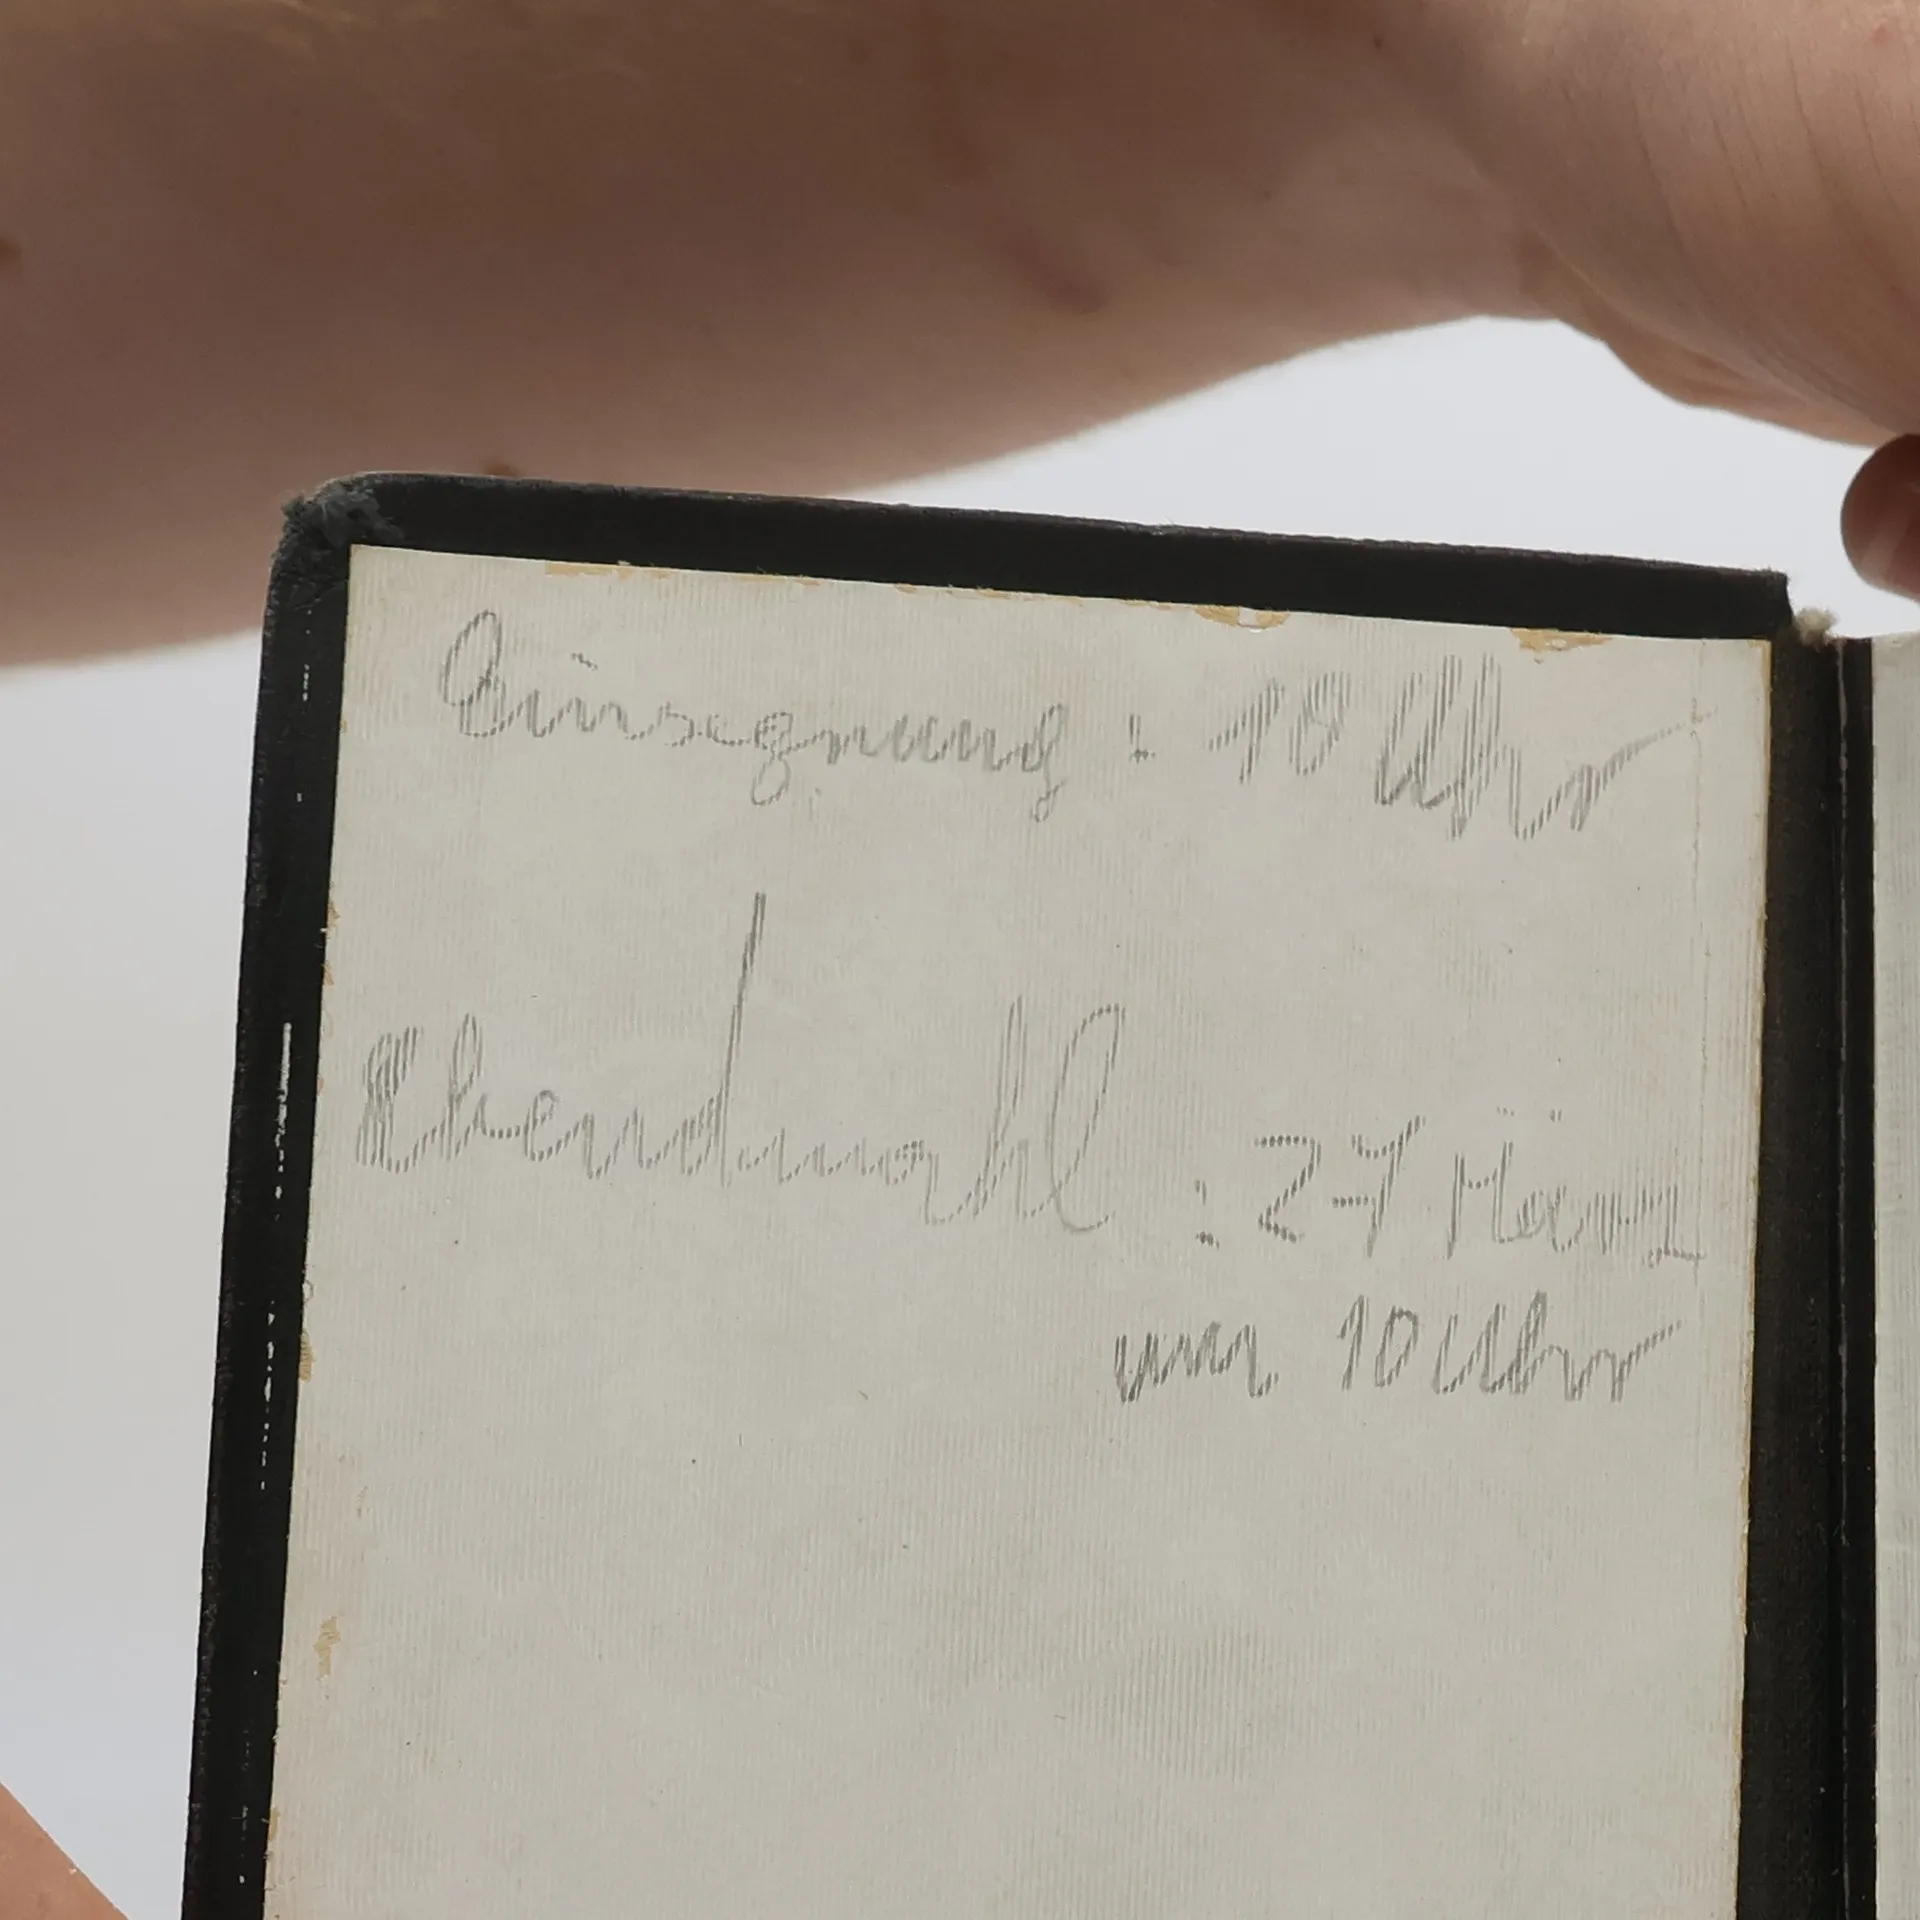 Einsegnung : 10 Uhr
Abendmahl : 27 März
um 10 Uhr